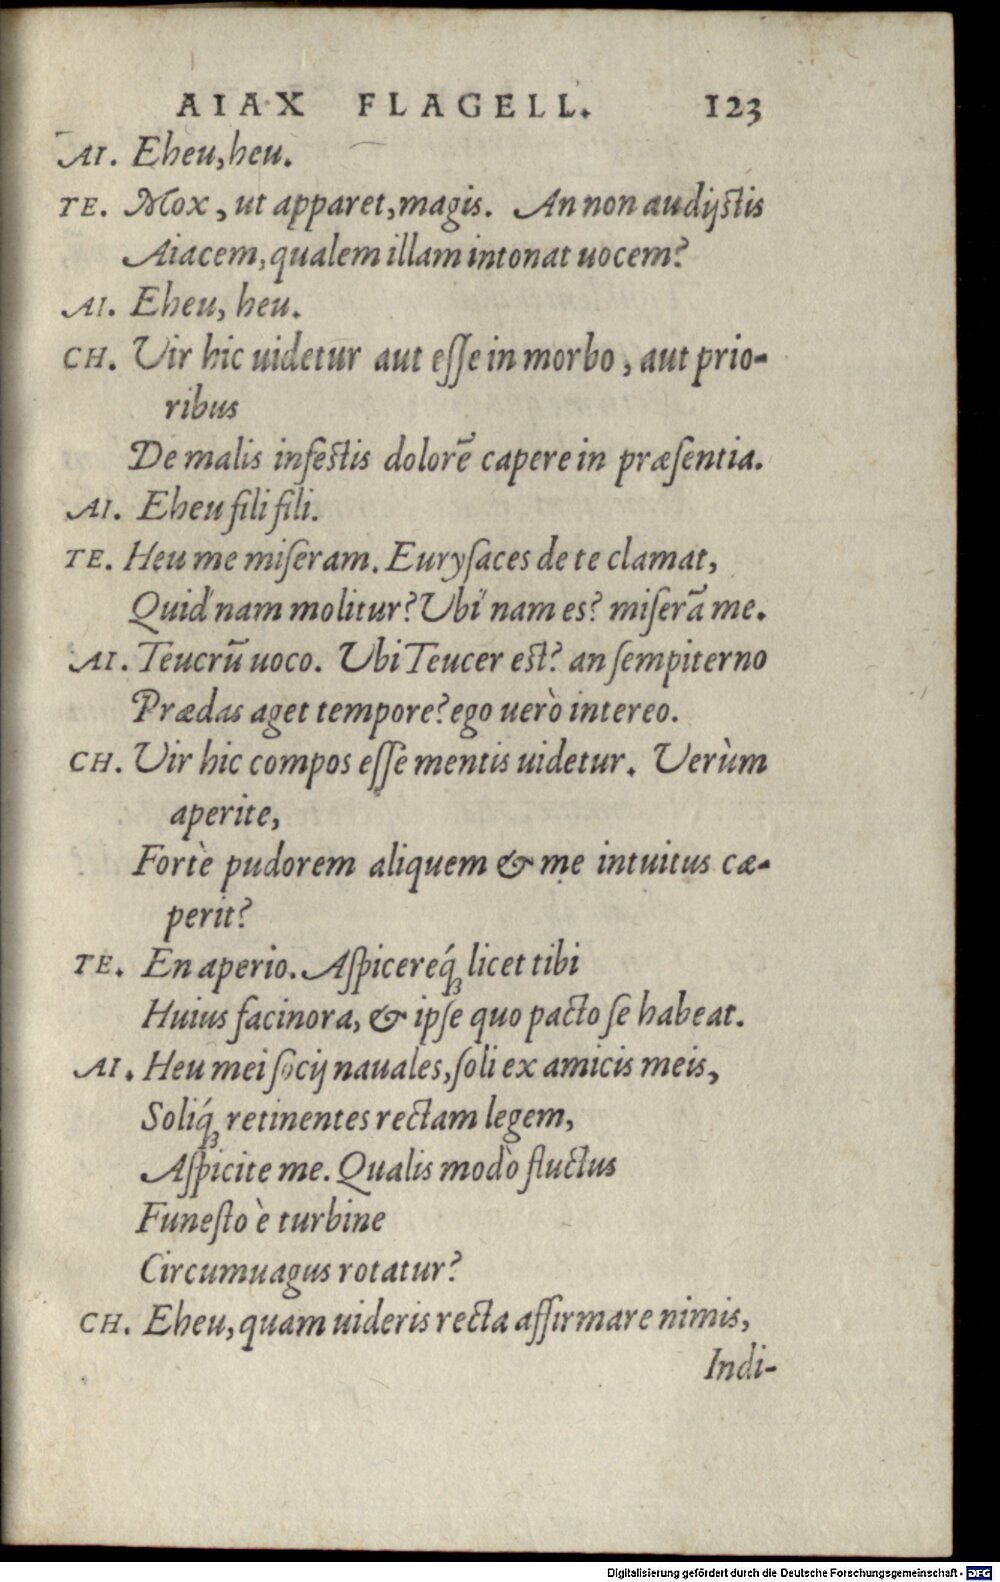 AIAX FLAGELL. 123
AI. Eheu, heu.
TE. Mox, ut apparet, magis. An non audijstis
Aiacem, qualem illam intonat uocem?
AI. Eheu, heu.
CH. Vir hic uidetur aut eſſe in morbo, aut prio-
ribus
De malis infestis dolorẽ capere in præſentia.
AI. Eheu fili fili.
TE. Heu me miſeram. Euryſaces de te clamat,
Quid nam molitur? Vbi nam es? miſerã me.
AI. Teucrũ uoco. Vbi Teucer est? an ſempiterno
Prædas aget tempore? ego uerò intereo.
CH. Vir hic compos eſſe mentis uidetur. Verùm
aperite,
Fortè pudorem aliquem & me intuitus cæ-
perit?
TE. En aperio. Aſpicereq́ꝫ licet tibi
Huius facinora, & ipſe quo pacto ſe habeat.
AI. Heu mei ſocij nauales, ſoli ex amicis meis,
Soliq́ꝫ retinentes rectam legem,
Aſpicite me. Qualis modò fluctus
Funeſto è turbine
Circumuagus rotatur?
CH. Eheu, quam uideris recta affirmare nimis,
Indi-
Digitalisierung gefördert durch die Deutsche Forschungsgemeinschaft - DFG